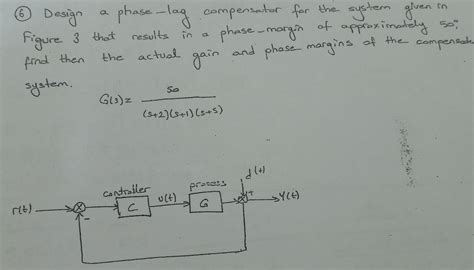 ⑥ Design a phase-lag compensator for the system given in
Figure 3 that results in a phase-margin of approximately 50°,
find then the actual gain and phase margins of the compensate
system.
G(s)= 50
(s+2)(s+1)(s+5)
d(t)
controller process
r(t) C u(t) G + y(t)
-